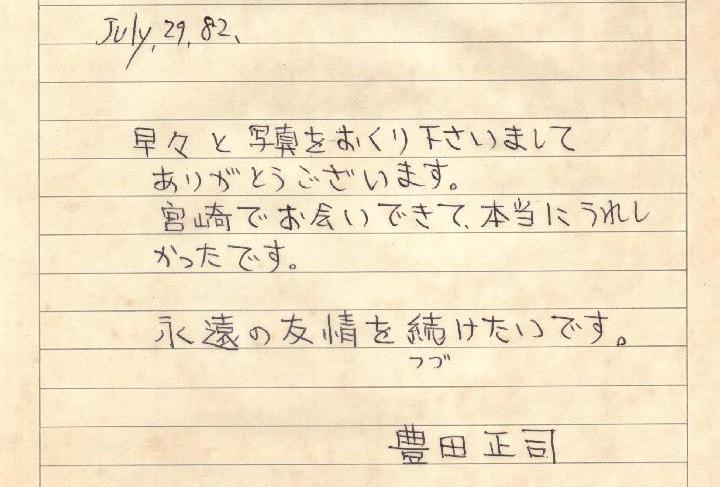 July, 29, 82,
早々と写真をおくり下さいまして
ありがとうございます。
宮崎でお会いできて、本当にうれし
かったです。
永遠の友情を続けたいです。
つづ
豊田正司